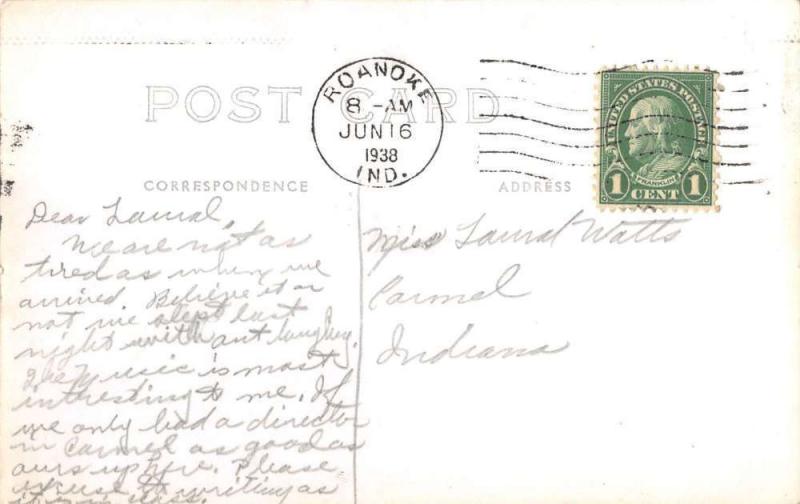 POST CARD
ROANOKE
8 -AM
JUN 16
1938
IND.
UNITED STATES POSTAGE
FRANKLIN
1 CENT 1
CORRESPONDENCE
ADDRESS
Dear Laural,
We are not as
tired as when we
arrived. Believe it or
not we slept last
night with out
The music is most
interesting to me. If
we only had a director
in Carmel as good as
ours up here. Please
excuse writing as
Miss Laural Watts
Carmel
Indiana